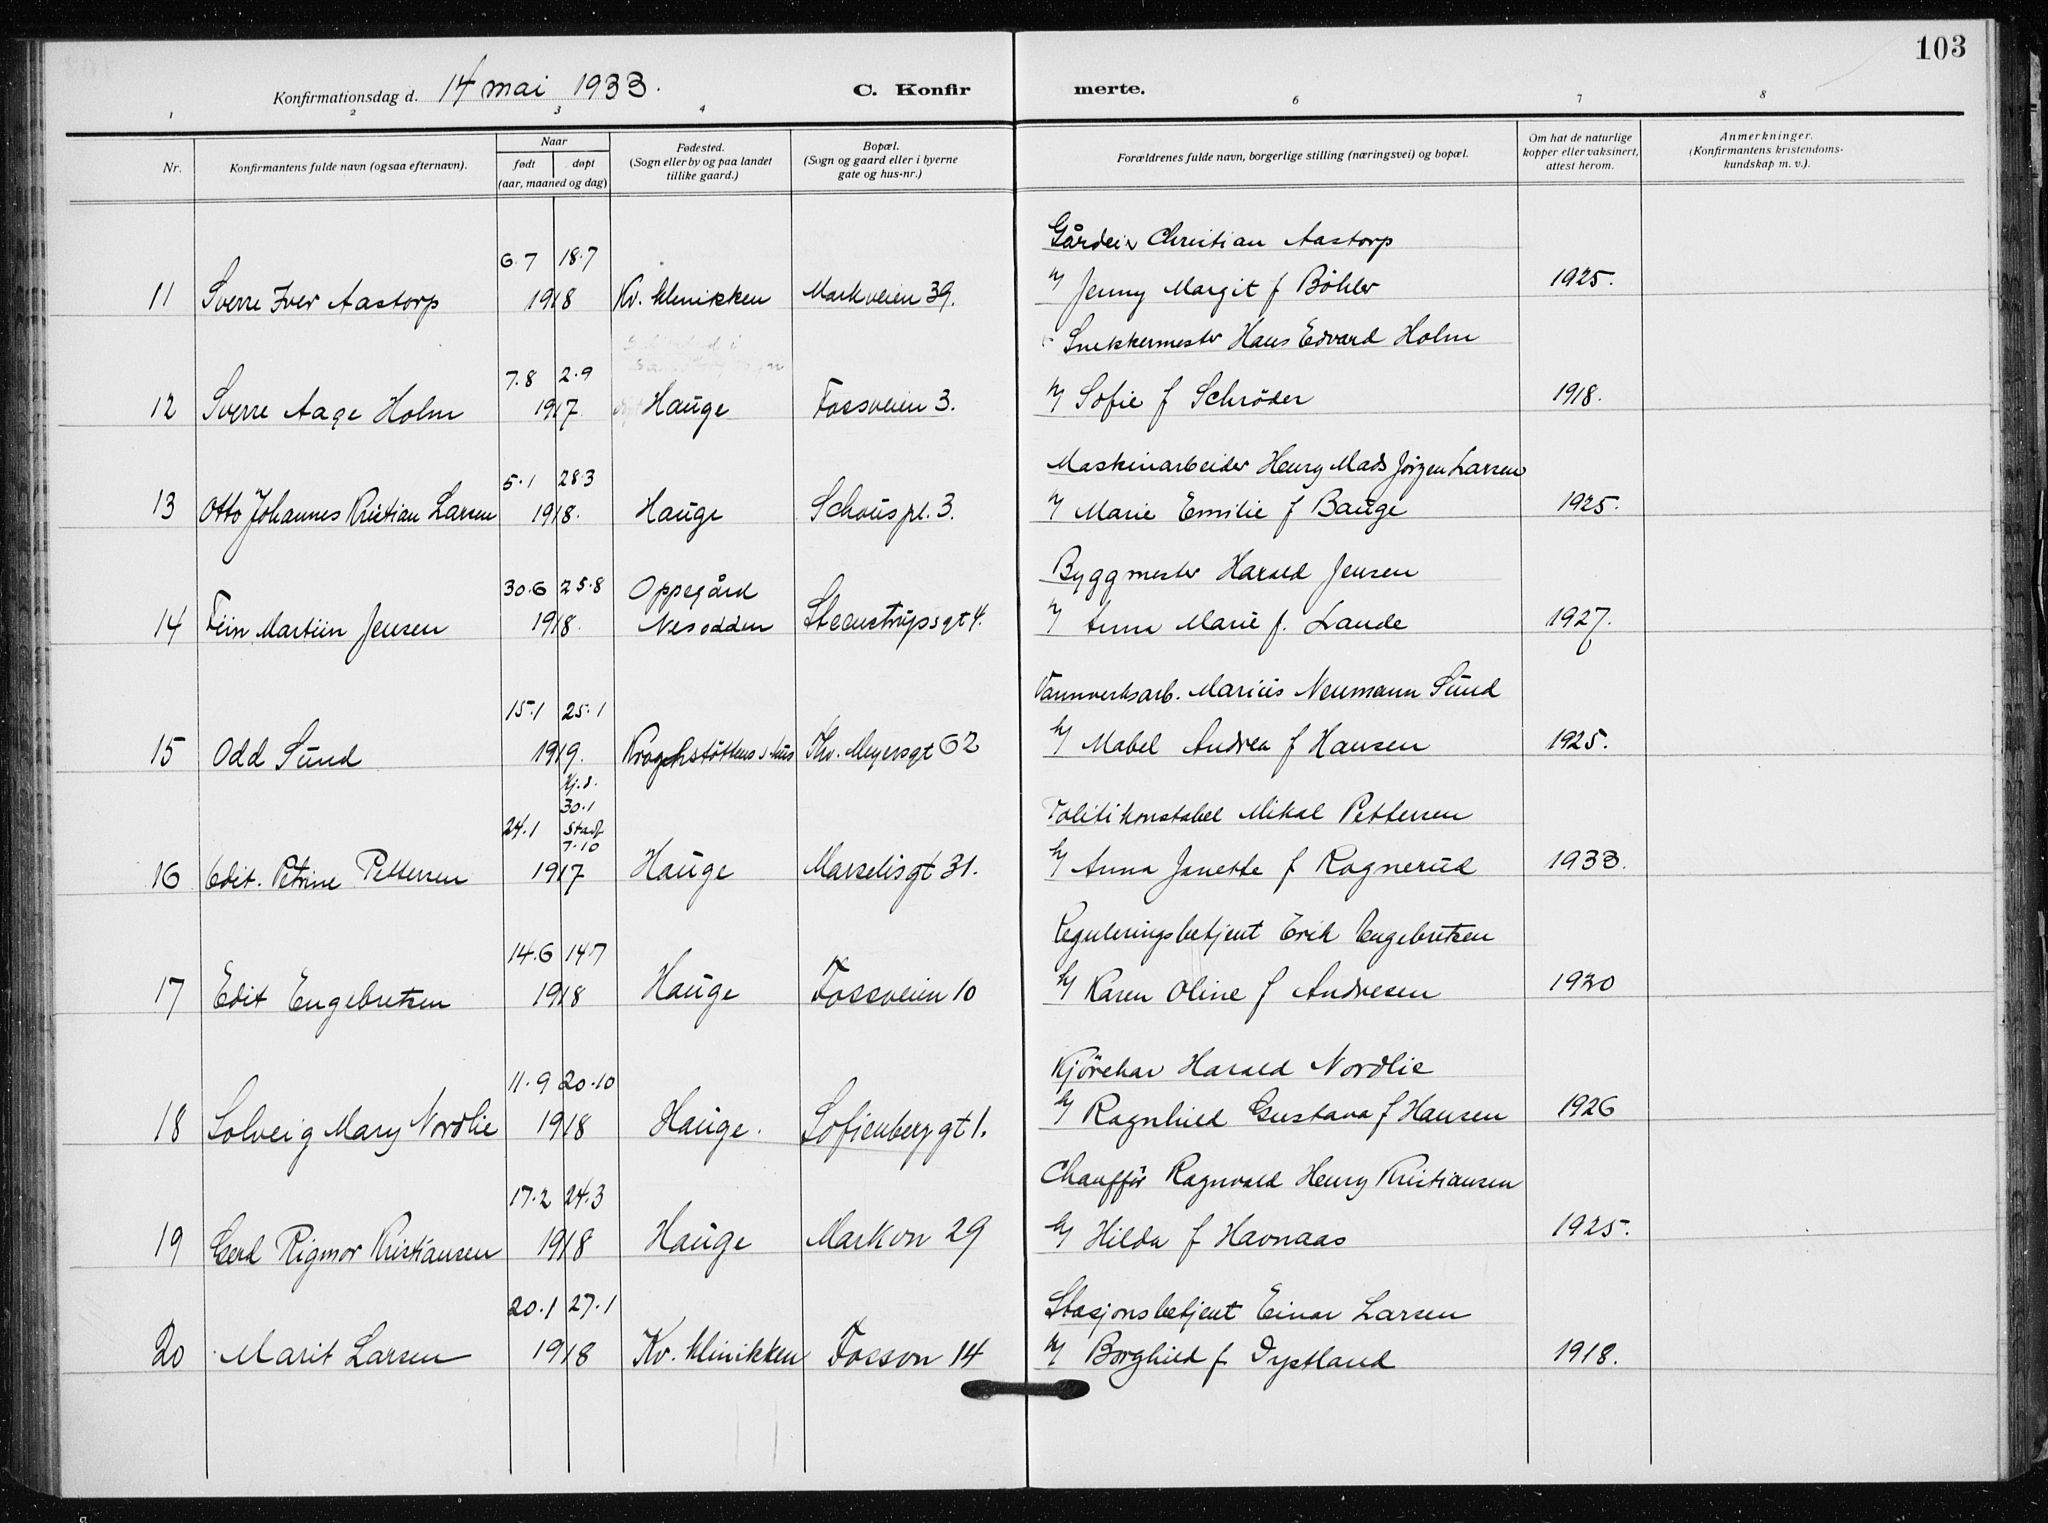 103
Konfirmationsdag d. 14 mai 1933.
C. Konfirmerte.
1 2 3 4 6 7 8
Nr.
Konfirmantens fulde navn (ogsaa efternavn).
Naar
født
døpt
(aar, maaned og dag)
Fødested.
(Sogn eller by og paa landet
tillike gaard.)
Bopæl.
(Sogn og gaard eller i byerne
gate og hus-nr.)
Forældrenes fulde navn, borgerlige stilling (næringsvei) og bopæl.
Om hat de naturlige
kopper eller vaksinert,
attest herom.
Anmerkninger.
(Konfirmantens kristendoms-
kundskap m. v.).
6.7 18.7 Gårdeier Christian Aastorp
11 Sverre Iver Aastorp 1918 Kv. klinikken Markveien 39. h/ Jenny Margit f Böhler 1925.
7.8 2.9 Snekkermester Hans Edvard Holm
12 Sverre Aage Holm 1917. Hauge Fossveien 3. h/ Sofie f Schröder 1918.
5.1 28.3 Maskinarbeider Henry Mads Jörgen Larsen
13 Otto Johannes Kristian Larsen 1918. Hauge Schous pl. 3. h/ Marie Emilie f Bauge 1925.
30.6 25.8 Oppegård Byggmester Harald Jensen
14 Martin Jensen 1918. Nesodden Steenstrupsgt 4. h/ Anna Marie f. Lande 1927.
15.1 25.1 Vannverksarb. Marius Neumann Sund
15 Odd Sund 1919. Thv. Meyersgt 62 h/ Mabel Andrea f Hansen 1925.
Kj.d.
30.1
24.1 Stadf
7.10 Politikonstabel Mikal Pettersen
16 Edit. Petrine Pettersen 1917 Hauge Marselisgt 31. h/ Anna Janette f Rognerud 1933.
14.6 14.7 Reguleringsbetjent Erik Engebretsen
17 Edit Engebretsen 1918 Hauge Fossveien 10 h/ Karen Oline f Andresen 1920
11.9 20.10 Kjörekar Harald Nordlie
18 Solveig Mary Nordlie 1918 Hauge. Sofienberg gt 1. h/ Ragnhild Gustava f Hansen 1926
17.2 24.3 Chaufför Ragnvald Henry Kristiansen
19 Gerd Rigmor Kristiansen 1918 Hauge Markvn 29 h/ Hilda f Havnaas 1925.
20.1 27.1 Stasjonsbetjent Einar Larsen
20 Marit Larsen 1918 Kv. klinikken Fossvn 14 h/ Borghild f. Dystland 1918.